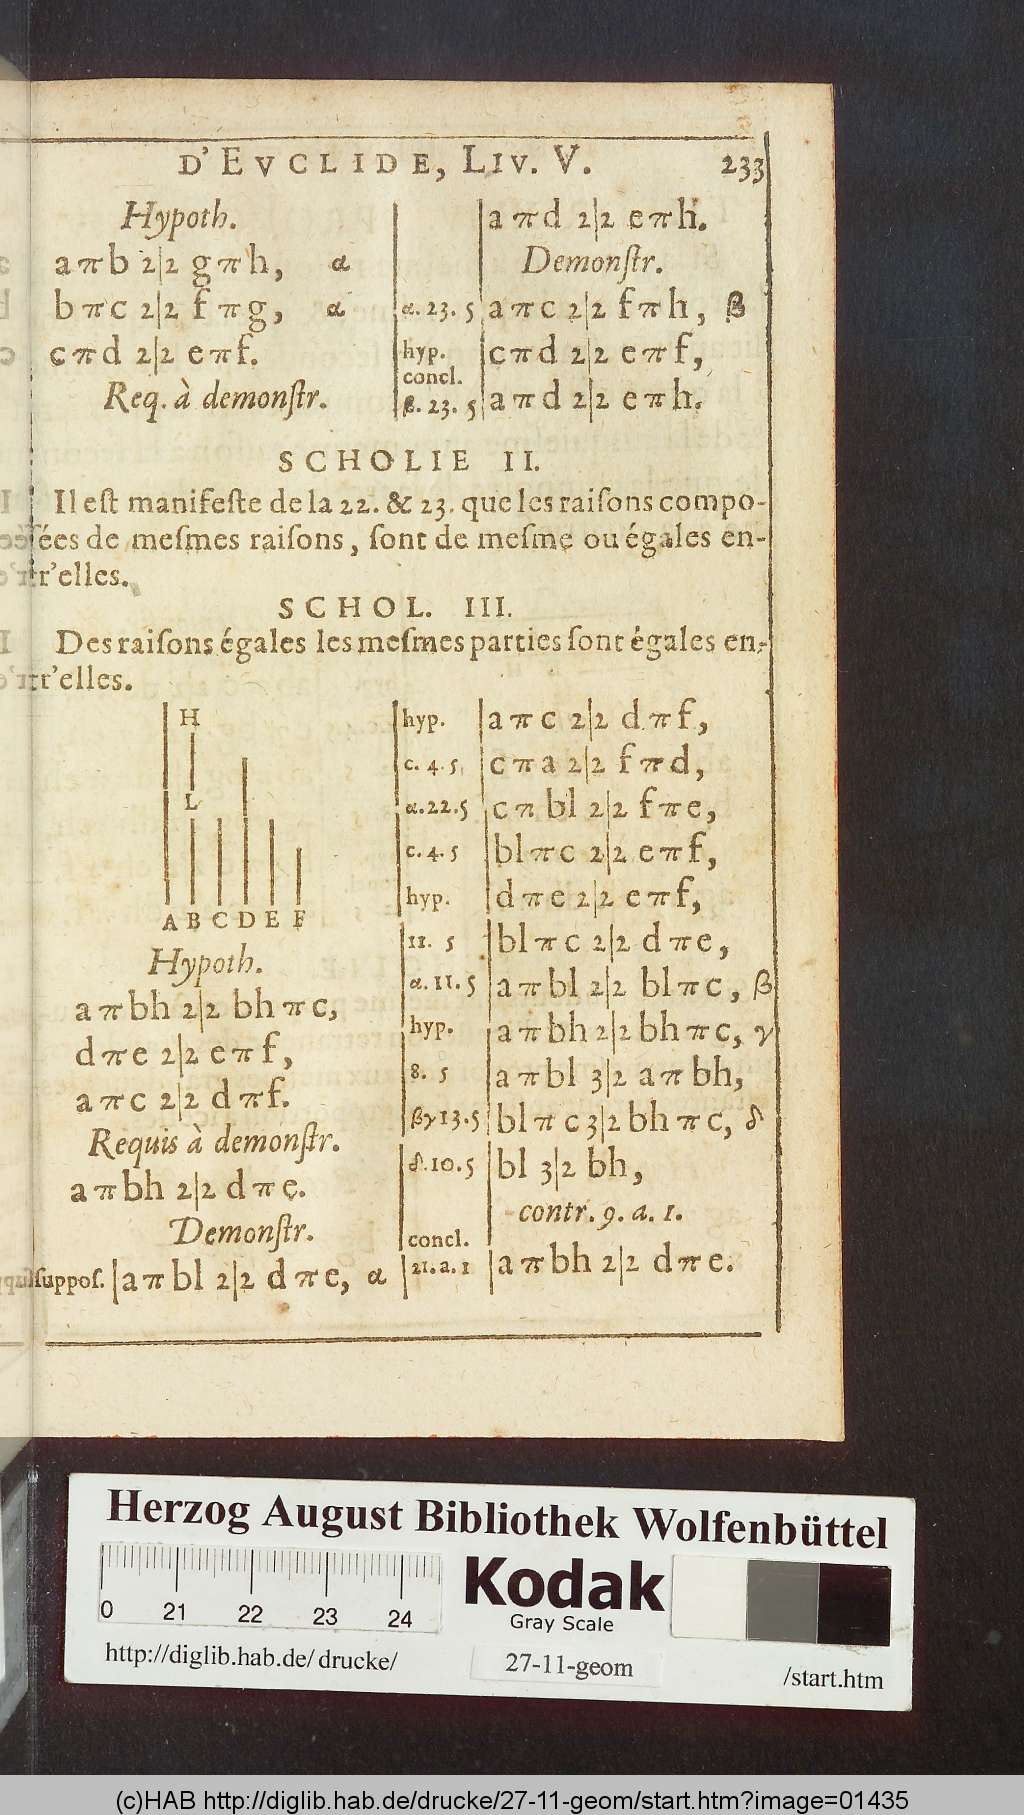 D'EVCLIDE, LIV. V. 233
Hypoth.
a π b 2|2 g π h, α
b π c 2|2 f π g, α
c π d 2|2 e π f.
Req. à demonſtr.
a π d 2|2 e π h.
Demonſtr.
α. 23. 5 a π c 2|2 f π h, β
hyp. c π d 2|2 e π f,
concl.
β. 23. 5 a π d 2|2 e π h.
SCHOLIE II.
Il eſt manifeſte de la 22. & 23. que les raiſons compo-
ſées de meſmes raiſons, ſont de meſme ou égales en-
tr'elles.
SCHOL. III.
Des raiſons égales les meſmes parties ſont égales en-
tr'elles.
H
L
A B C D E F
Hypoth.
a π bh 2|2 bh π c,
d π e 2|2 e π f,
a π c 2|2 d π f.
Requis à demonſtr.
a π bh 2|2 d π e.
Demonſtr.
ſuppoſ. a π bl 2|2 d π e, α
hyp. a π c 2|2 d π f,
c. 4. 5 c π a 2|2 f π d,
α. 22. 5 c π bl 2|2 f π e,
c. 4. 5 bl π c 2|2 e π f,
hyp. d π e 2|2 e π f,
11. 5 bl π c 2|2 d π e,
α. 11. 5 a π bl 2|2 bl π c, β
hyp. a π bh 2|2 bh π c, γ
8. 5 a π bl 3|2 a π bh,
βγ13. 5 bl π c 3|2 bh π c, δ
δ. 10. 5 bl 3|2 bh,
contr. 9. a. 1.
concl.
21. a. 1 a π bh 2|2 d π e.
Herzog August Bibliothek Wolfenbüttel
0 21 22 23 24
Kodak
Gray Scale
http://diglib.hab.de/drucke/ 27-11-geom /start.htm
(c)HAB http://diglib.hab.de/drucke/27-11-geom/start.htm?image=01435